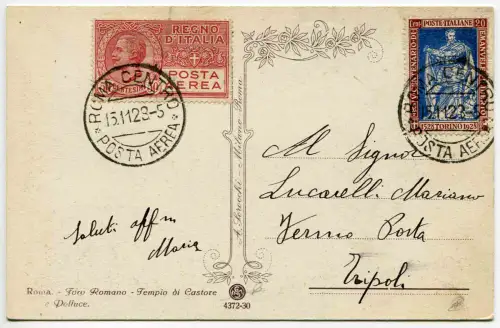 REGNO
D'ITALIA
POSTA
AEREA
ROMA CENTRO
15.11 28-5
* POSTA AEREA *
POSTE ITALIANE
20
EMANUELE
TORINO 1928
ROMA CENTRO
15.11 28-5
POSTA AEREA
A. Scrocchi - Milano-Roma
Al Signor
Lucarelli Mariano
Fermo Posta
Tripoli
Saluti aff.mi
Maria
Roma. - Foro Romano - Tempio di Castore
e Polluce.
4372-30